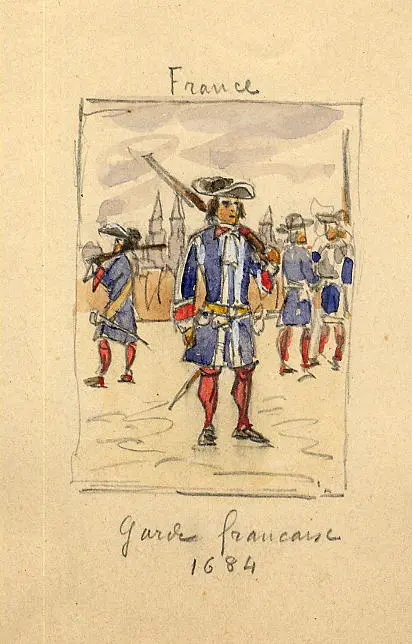 France
Garde francaise
1684